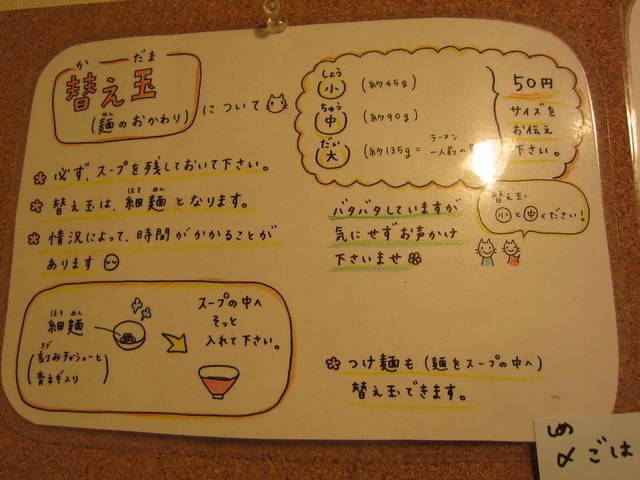 か だま
替え玉
(麺のおかわり)
めん
について
必ず、スープを残しておいて下さい。
ほそ めん
替え玉は、細麺となります。
情況によって、時間がかかることが
あります
ほそ めん
細麺
きざ
青ネギ入り
スープの中へ
そっと
入れて下さい。
しょう
小 (約45g)
ちゅう
中 (約90g)
だい
ラーメン
大 (約135g=一人前の
50円
サイズを
お伝え
下さい。
替え玉
小と中ください!
バタバタしていますが
気にせずお声かけ
下さいませ
つけ麺も(麺をスープの中へ)
替え玉できます。
〆ごは